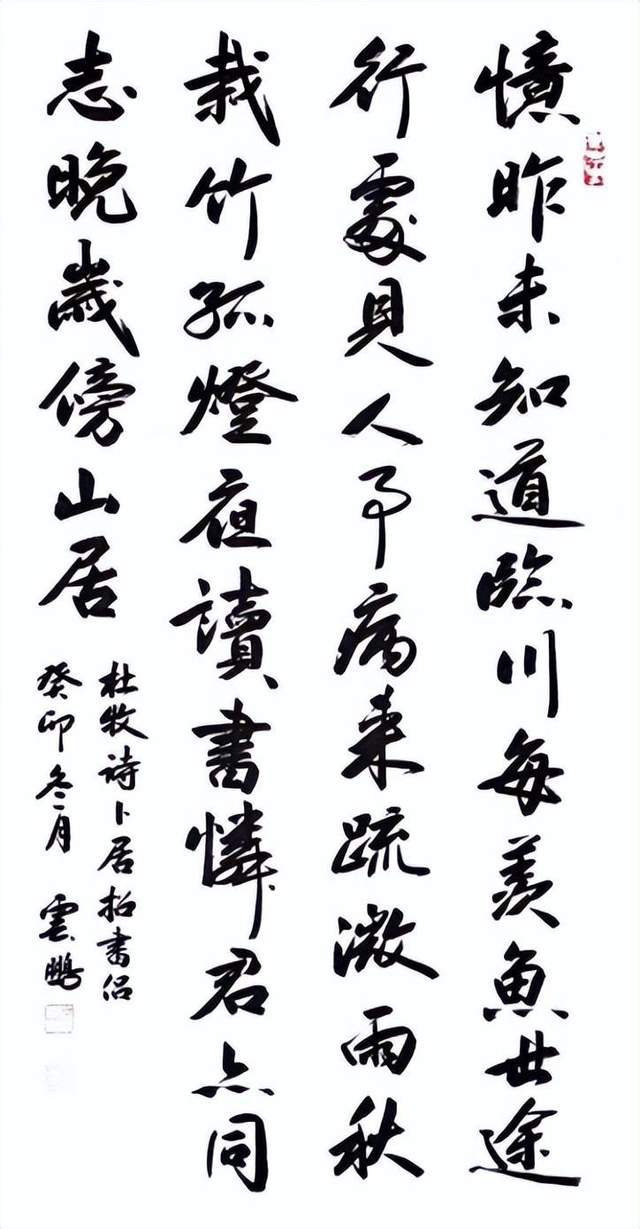 憶昨未知道臨川每羨魚世途
行處見人事病来疏微雨秋
栽竹孤燈夜讀書憐君亦同
志晚歲傍山居
杜牧詩卜居招書侣
癸卯冬月 雲鵬